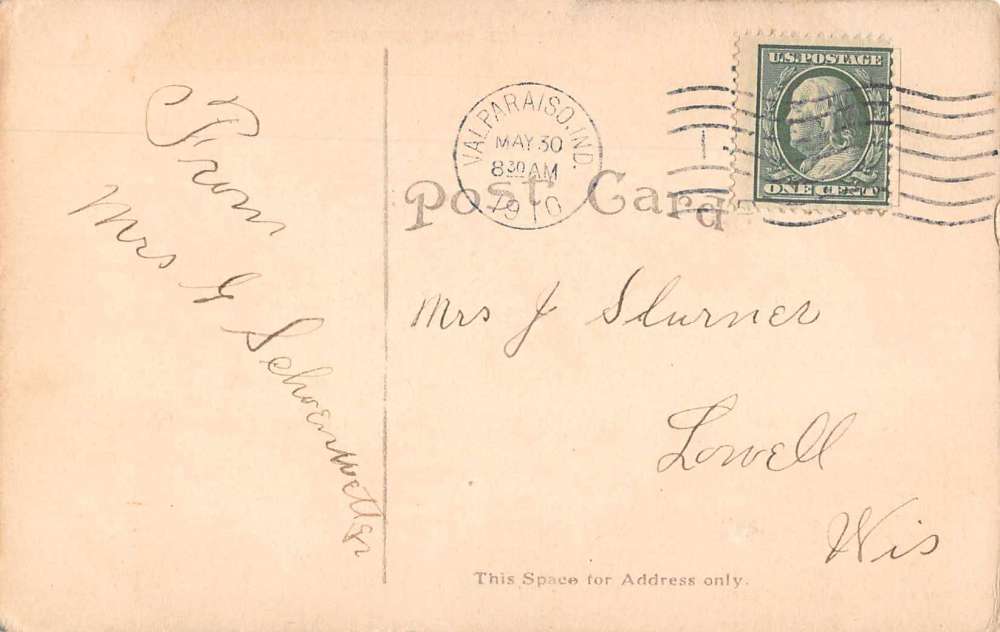 From
Mrs G Schoenwetter
VALPARAISO, IND.
MAY 30
8 30 AM
1910
U.S. POSTAGE
ONE CENT
Post Card
Mrs J Slurner
Lowell
Wis
This Space for Address only.